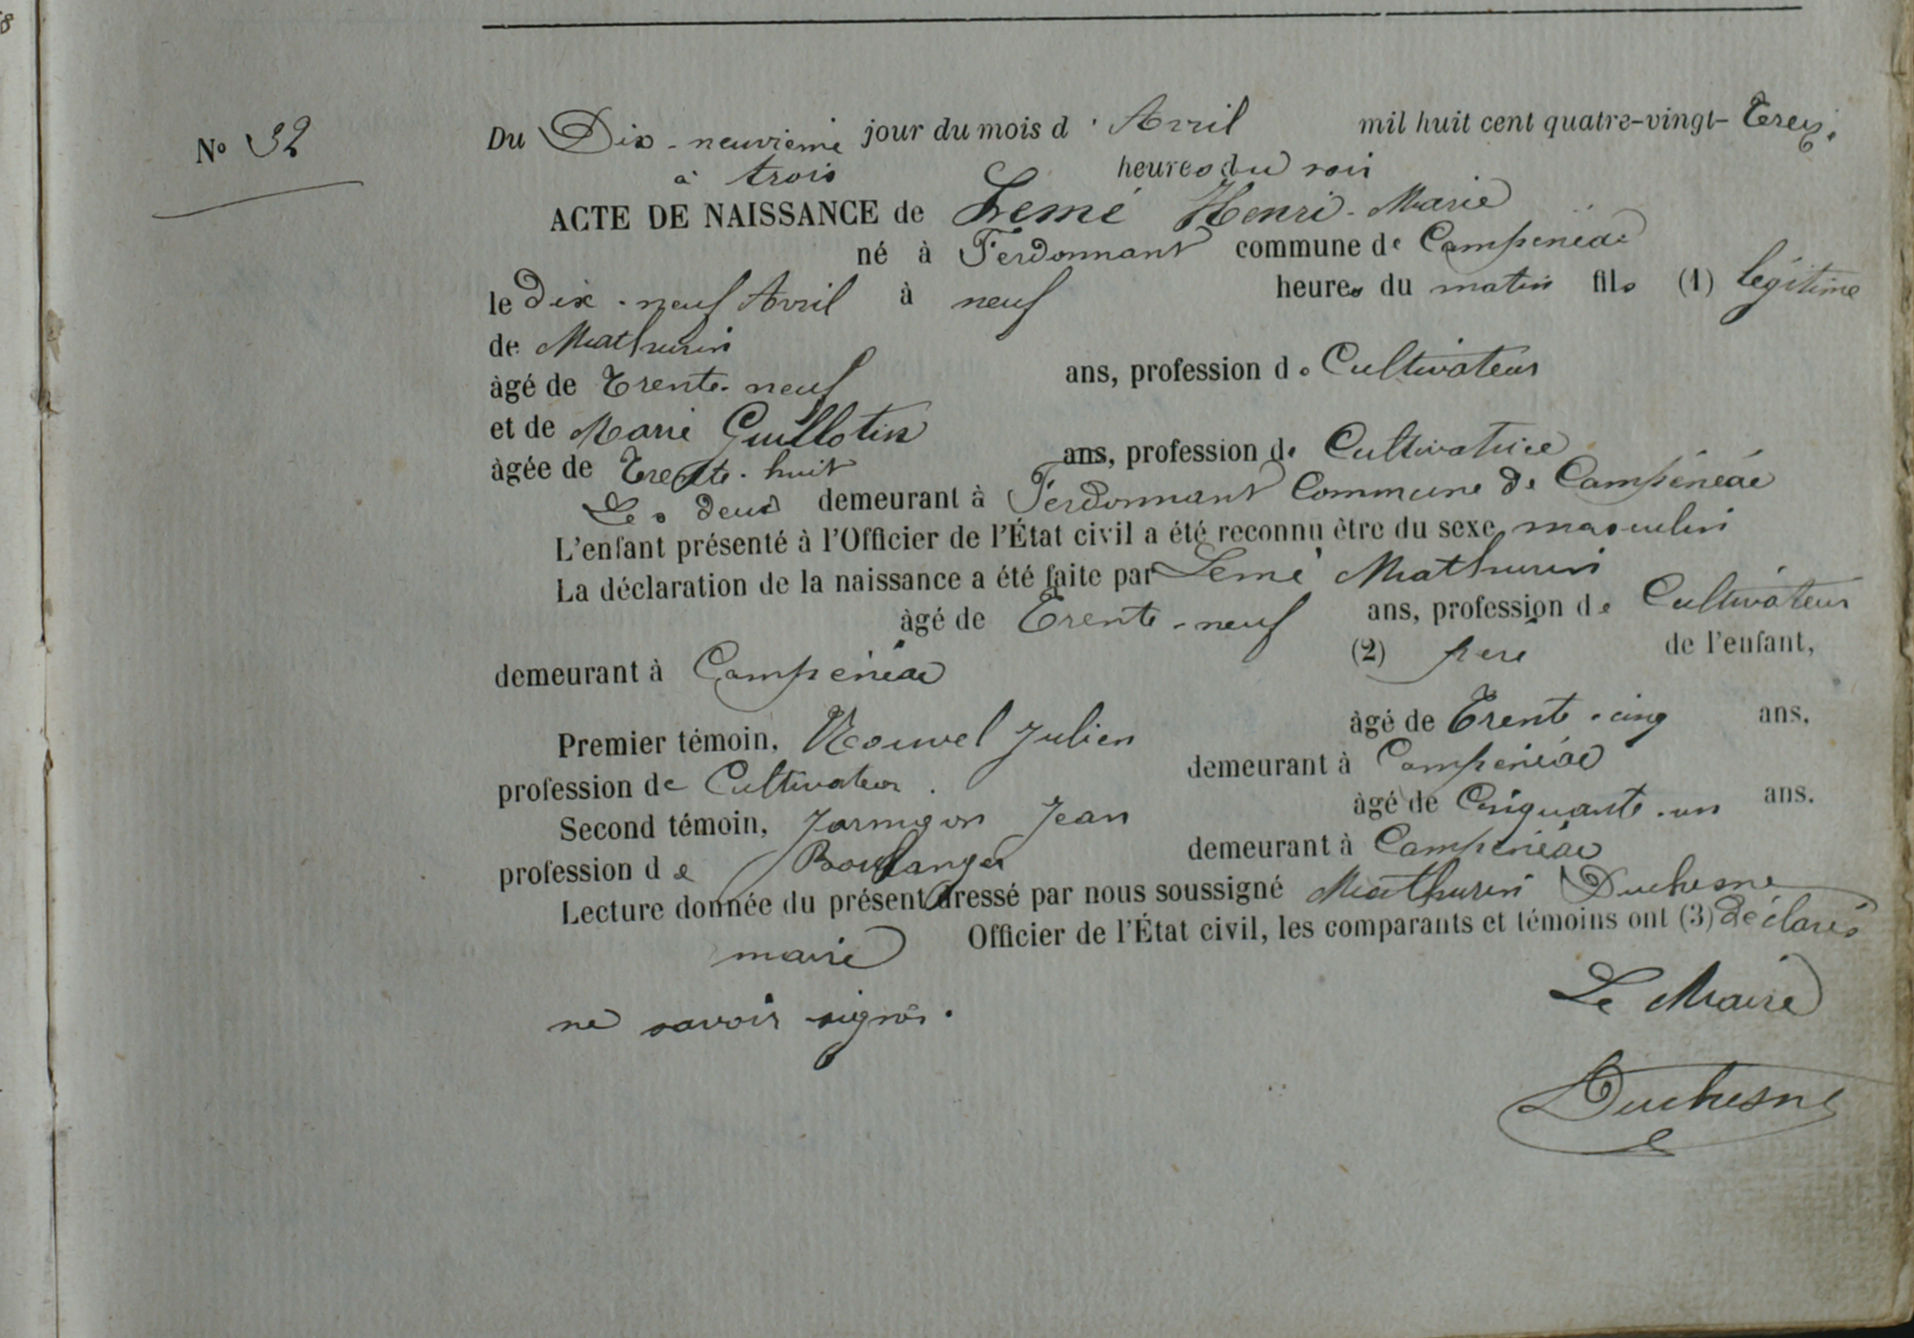 8
Nº 32
Du Dix-neuvième jour du mois d'Avril mil huit cent quatre-vingt-Treize
à trois heures du soir
ACTE DE NAISSANCE de Lemé Henri-Marie
né à Ferdonnant commune de Campénéac
le Dix-neuf Avril à neuf heures du matin fils (1) légitime
de Mathurin
âgé de Trente-neuf ans, profession de Cultivateur
et de Marie Guillotin
âgée de Trente-huit ans, profession de Cultivatrice
Les deux demeurant à Ferdonnant Commune de Campénéac
L'enfant présenté à l'Officier de l'État civil a été reconnu être du sexe masculin
La déclaration de la naissance a été faite par Lemé Mathurin
âgé de Trente-neuf ans, profession de Cultivateur
demeurant à Campénéac (2) père de l'enfant,
Premier témoin, Nouvel Julien âgé de Trente-cinq ans,
profession de Cultivateur. demeurant à Campénéac
Second témoin, Jarnigon Jean âgé de Cinquante-un ans.
profession de Boulanger demeurant à Campénéac
Lecture donnée du présent dressé par nous soussigné Mathurin Duchesne
maire Officier de l'État civil, les comparants et témoins ont (3) déclarés
ne savoir signer.
Le Maire
Duchesne